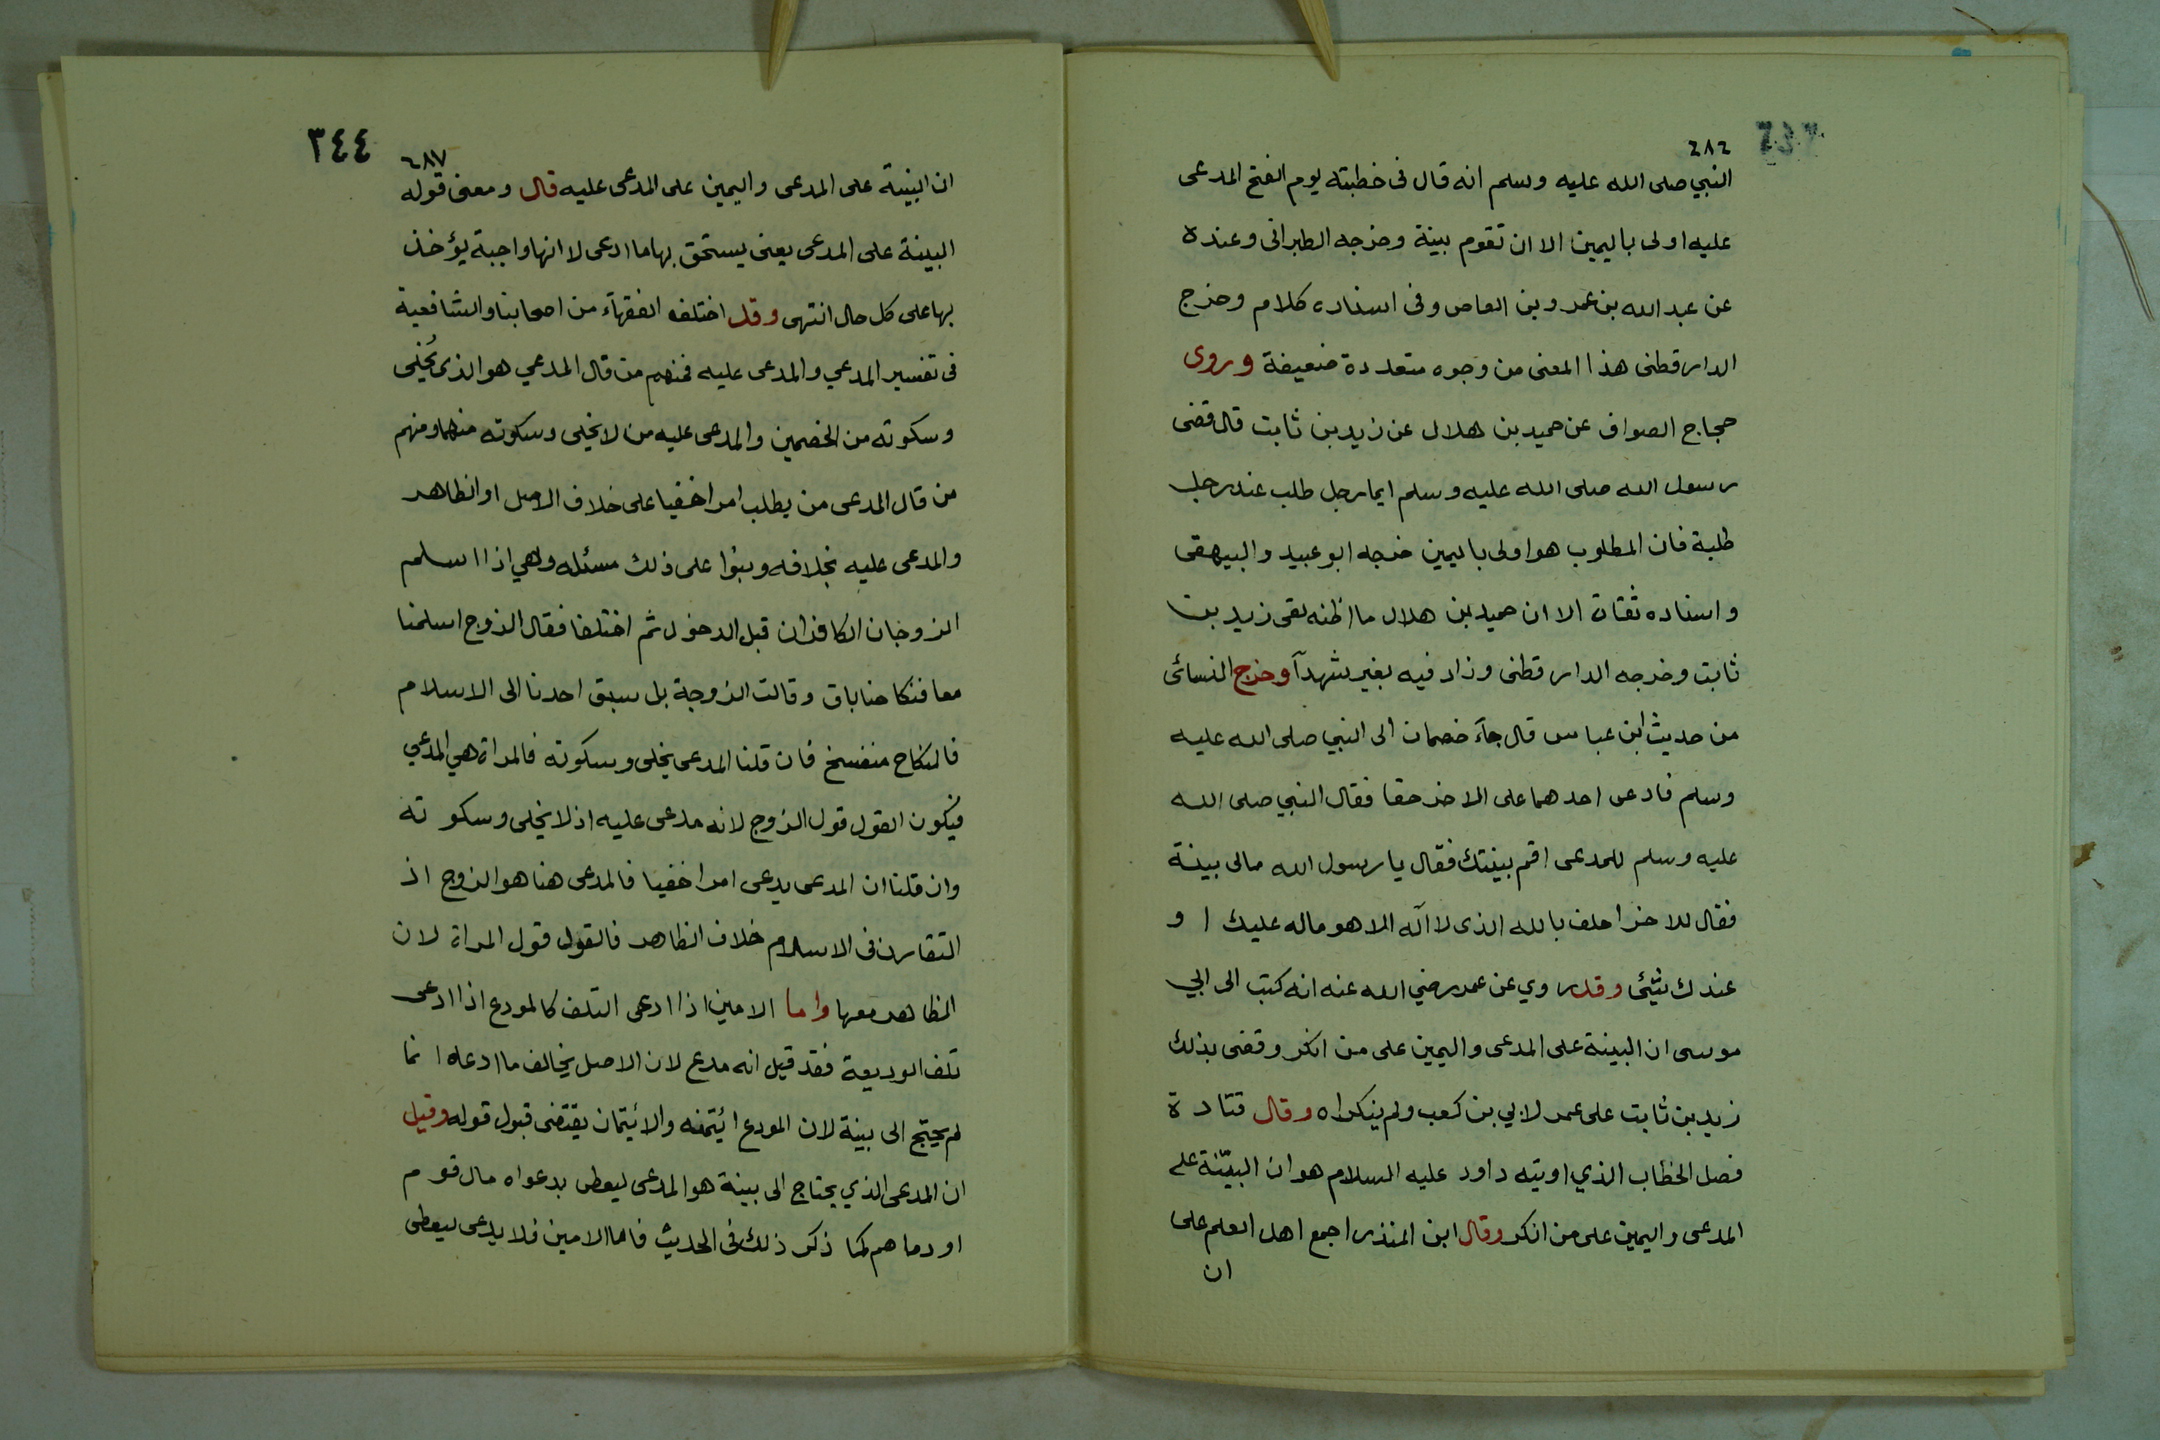 ٢٨٢
النبي صلى الله عليه وسلم انه قال فى خطبته يوم الفتح المدعى
عليه اولى باليمين الا ان تقوم بينة وخرجه الطبرانى وعنده
عن عبد الله بن عمرو بن العاص وفى اسناده كلام وخرج
الدارقطنى هذا المعنى من وجوه متعددة ضعيفة وروى
حجاج الصواف عن حميد بن هلال عن زيد بن ثابت قال قضى
رسول الله صلى الله عليه وسلم ايما رجل طلب عند رجل
طلبة فان المطلوب هو اولى باليمين خرجه ابو عبيد والبيهقى
واسناده ثقات الا ان حميد بن هلال ما اظنه لقى زيد بن
ثابت وخرجه الدارقطنى وزاد فيه بغير شهدآ وخرج النسائى
من حديث ابن عباس قال جآء خصمان الى النبي صلى الله عليه
وسلم فادعى احدهما على الاخر حقا فقال النبي صلى الله
عليه وسلم للمدعى اقم بينتك فقال يا رسول الله مالى بينة
فقال للاخر احلف بالله الذى لا اله الا هو ماله عليك ا و
عندك شيئ وقد روي عن عمر رضي الله عنه انه كتب الى ابي
موسى ان البينة على المدعى واليمين على من انكر وقضى بذلك
زيد بن ثابت على عمر لابي بن كعب ولم ينكراه وقال قتادة
فصل الخطاب الذي اوتيه داود عليه السلام هو ان البينة على
المدعى واليمين على من انكر وقال ابن المنذر اجمع اهل العلم على
ان
٣٤٤
٦٨٧
ان البينة على المدعى واليمين على المدعى عليه قال ومعنى قوله
البينة على المدعى يعنى يستحق بها ما ادعى لا انها واجبة يؤخذ
بها على كل حال انتهى وقد اختلف الفقهآء من اصحابنا والشافعية
فى تفسير المدعي والمدعى عليه فمنهم من قال المدعي هو الذى يُخلى
وسكوته من الخصمين والمدعى عليه من لا يخلى وسكوته منهما ومنهم
من قال المدعى من يطلب امرا خفيا على خلاف الاصل او الظاهر
والمدعى عليه بخلافه وبنوا على ذلك مسئله وهي اذا اسلم
الزوجان الكافران قبل الدخول ثم اختلفا فقال الزوج اسلمنا
معا فنكاحنا باق وقالت الزوجة بل سبق احدنا الى الاسلام
فالنكاح منفسخ فان قلنا المدعى يخلى وسكوته فالمراة هي المدعي
فيكون القول قول الزوج لانه مدعى عليه اذ لا يخلى وسكوته
وان قلنا ان المدعى يدعى امرا خفيا فالمدعى هنا هو الزوج اذ
التقارن فى الاسلام خلاف الظاهر فالقول قول المراة لان
الظاهر معها واما الامين اذا ادعى التلف كالمودع اذا ادعى
تلف الوديعة فقد قيل انه مدع لان الاصل يخالف ما ادعاه انما
لم يحتج الى بينة لان المودع ائتمنه والائتمان يقتضى قبول قوله وقيل
ان المدعى الذي يحتاج الى بينة هو المدعى ليعطى بدعواه مال قوم
او دماهم كما ذكر ذلك فى الحديث فاما الامين فلا يدعى ليعطى